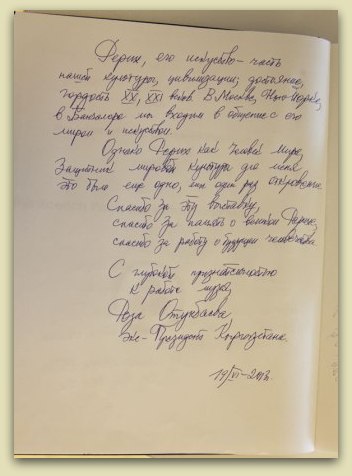 Рерих, его искусство – часть
нашей культуры, цивилизации, достояние,
гордость XX, XXI веков. В Москве, Нью-Йорке,
в Бангалоре мы входим в общение с его
миром и искусством.
Однако Рерих как Человек мира,
Защитник мировой культуры для меня
это было еще одно, еще один раз откровение.
Спасибо за эту выставку,
спасибо за память о великом Рерихе,
спасибо за работу о будущем человечества.
С глубокой признательностью
к работе музея,
Роза Отунбаева,
Экс-Президент Кыргызстана.
19/VI-2013.